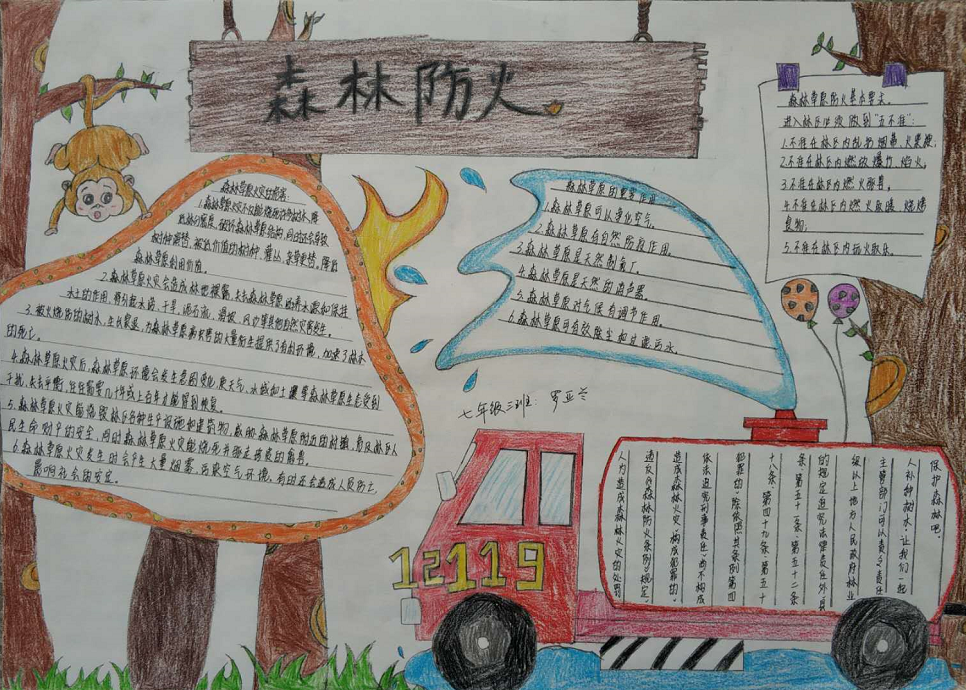 森林防火
森林草原火灾的危害:
1.森林草原火灾不仅能烧死许多树木,降
低林分密度,破坏森林草原结构,同时还会导致
树种演替,被低价值的树种、灌丛、杂草更替,降低
森林草原利用价值。
2.森林草原火灾会造成林地裸露,失去森林草原涵养水源和保持
水土的作用,将引起水涝、干旱、泥石流、滑坡、风沙等其他自然灾害发生。
3.被火烧伤的树木,生长衰退,为森林草原病虫害的大量衍生提供了有利环境,加速了树木
的死亡。
4.森林草原火灾后,森林草原环境会发生急剧变化,使天气、水域和土壤等森林草原生态受到
干扰,失去平衡,往往需要几十年或上百年才能得到恢复。
5.森林草原火灾能烧毁林区各种生产设施和建筑物,威胁森林草原附近的村镇,危及林区人
民生命财产的安全,同时森林草原火灾能烧死并驱走珍贵的禽兽。
6.森林草原火灾发生时会产生大量烟雾,污染空气环境,有时还会造成人员伤亡,
影响社会的安定。
森林草原的重要作用
1.森林草原可以净化空气。
2.森林草原有自然防疫作用。
3.森林草原是天然制氧厂。
4.森林草原是天然的消声器。
5.森林草原对气候有调节作用。
6.森林草原可有效除尘和过滤污水。
森林草原防火基本要求。
进入林区必须做到“五不准”:
1.不准在林区内乱扔烟蒂、火柴梗,
2.不准在林区内燃放爆竹、焰火,
3.不准在林区内燃火驱兽,
4.不准在林区内燃火取暖、烧烤
食物;
5.不准在林区内玩火取乐。
七年级三班: 罗亚兰
12119
保护森林吧,
人补种树木,让我们一起
主管部门可以责令责任
级以上地方人民政府林业
的规定追究法律责任外,县
条、第五十一条、第五十二条
十八条、第四十九条、第五十
犯罪的,除依照本条例第四
依法追究刑事责任;尚不构成
造成森林火灾,构成犯罪的,
违反《森林防火条例》规定,
人为造成森林火灾的处罚